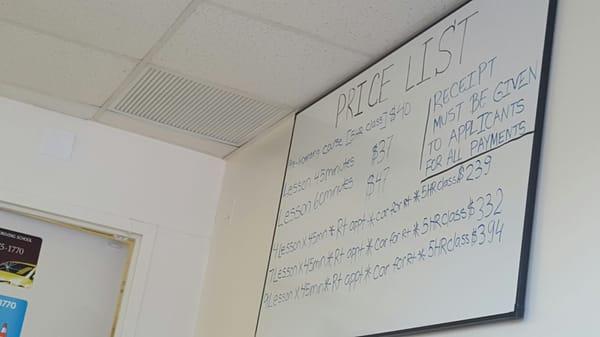 PRICE LIST
RECEIPT
MUST BE GIVEN
TO APPLICANTS
FOR ALL PAYMENTS
course [5HR class] $40
Lesson 45minutes $37
Lesson 60minutes $47
4 Lesson x 45mn * Rt appt * car for Rt * 5HR class $239
7 Lesson x 45mn * Rt appt * car for Rt * 5HR class $332
9 Lesson x 45mn * Rt appt * car for Rt * 5HR class $394
DRIVING SCHOOL
5-1770
1770